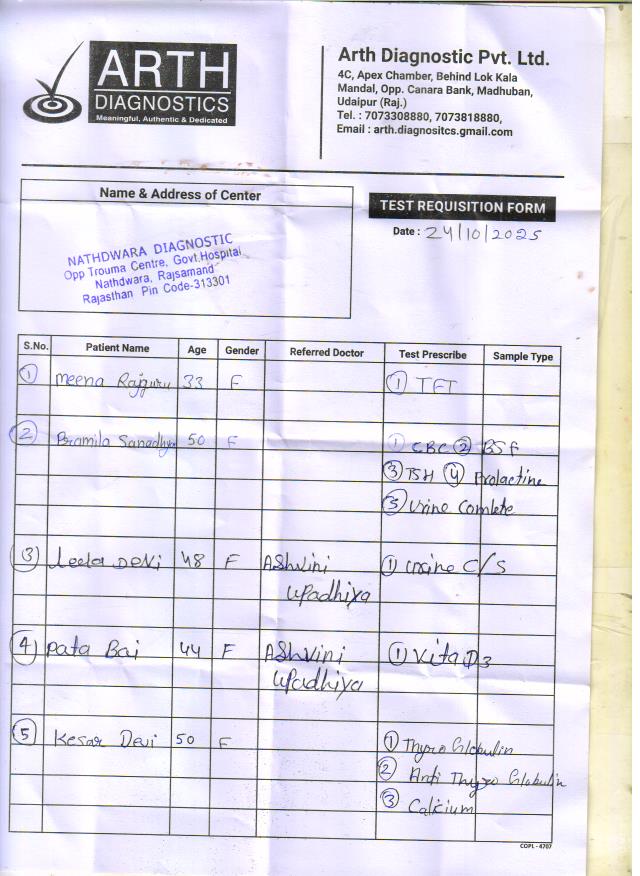 ARTH
DIAGNOSTICS
Meaningful, Authentic & Dedicated
Arth Diagnostic Pvt. Ltd.
4C, Apex Chamber, Behind Lok Kala
Mandal, Opp. Canara Bank, Madhuban,
Udaipur (Raj.)
Tel. : 7073308880, 7073818880,
Email : arth.diagnositcs.gmail.com
Name & Address of Center
NATHDWARA DIAGNOSTIC
Opp Trouma Centre, Govt.Hospital
Nathdwara, Rajsamand
Rajasthan Pin Code-313301
TEST REQUISITION FORM
Date : 24/10/2025
S.No. Patient Name Age Gender Referred Doctor Test Prescribe Sample Type
1 Meena Rajguru 33 F 1 TFT
2 Pramila Sanadhya 50 F 1 CBC 2 BSF
3 TSH 4 Prolactine
5 Urine Comlete
3 Leela Devi 48 F Ashvini 1 Urine C/S
Upadhiya
4 Pata Bai 44 F Ashvini 1 Vita D3
Upadhiya
5 Kesar Devi 50 F 1 Thyro Globulin
2 Anti Thyro Globulin
3 Calcium
COPL - 4707